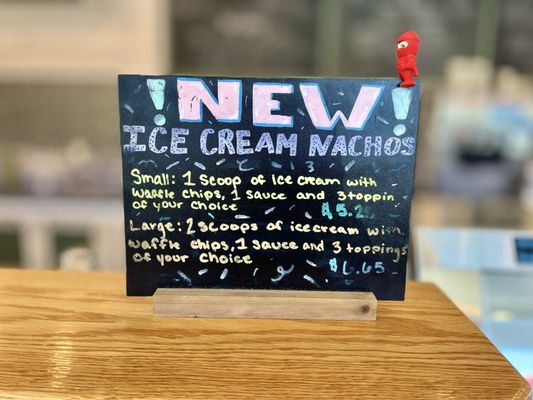 !NEW!
ICE CREAM NACHOS
Small: 1 Scoop of Ice cream with
Waffle chips, 1 sauce and 3 toppin
of your choice $5.25
Large: 2 scoops of icecream with
waffle chips, 1 sauce and 3 toppings
of your choice $6.65